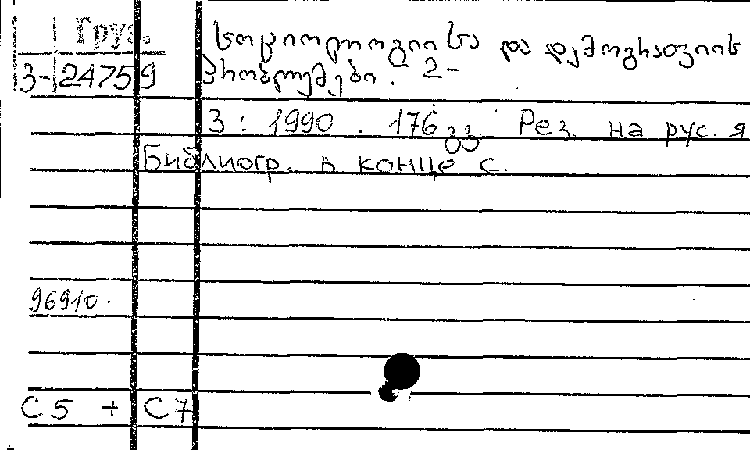 Груз.
3-24759
სოციოლოგიისა და დემოგრაფიის
პრობლემები. 2-
3: 1990. 176 გვ. Рез. на рус. я
Библиогр. в конце с.
96910.
С5 + С7